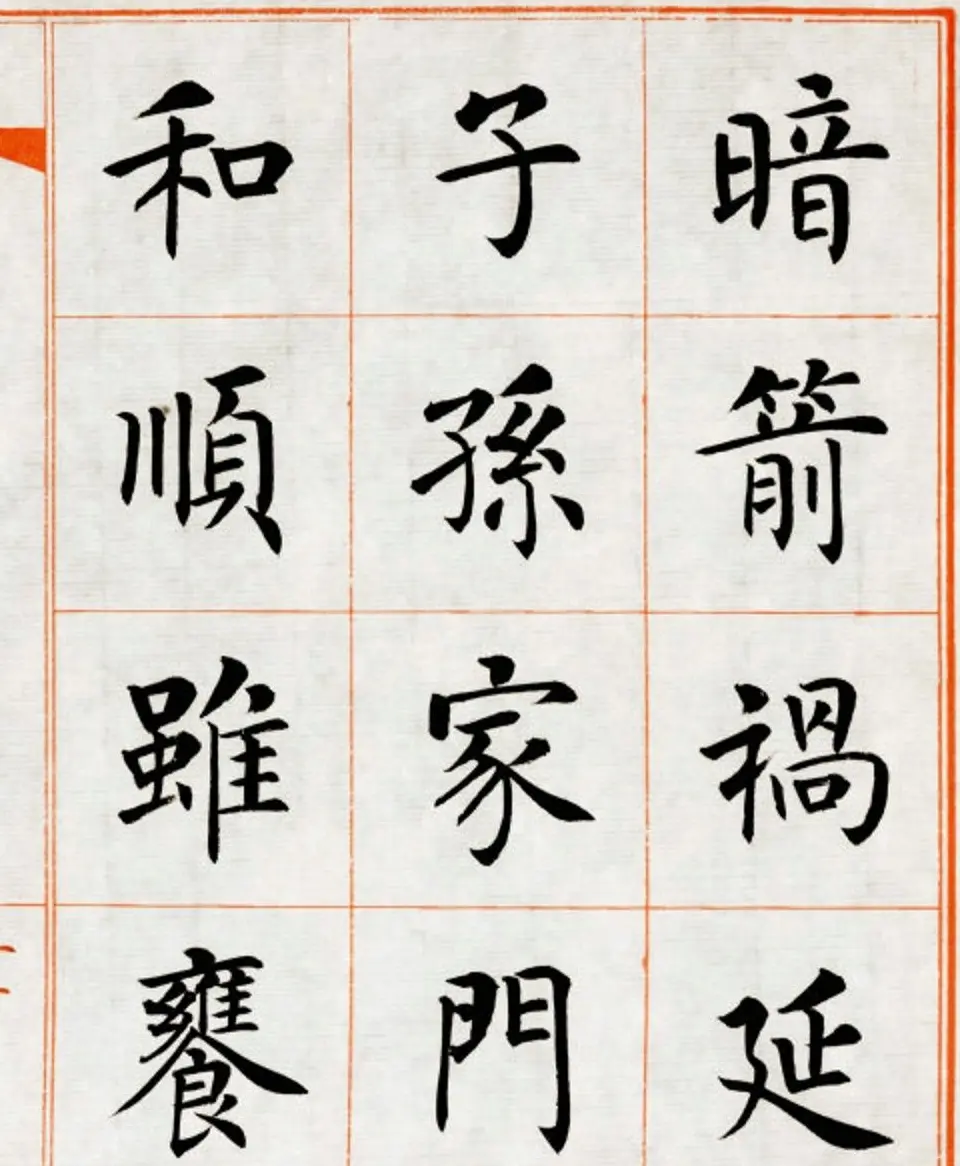 暗箭禍延
子孫家門
和順雖饔